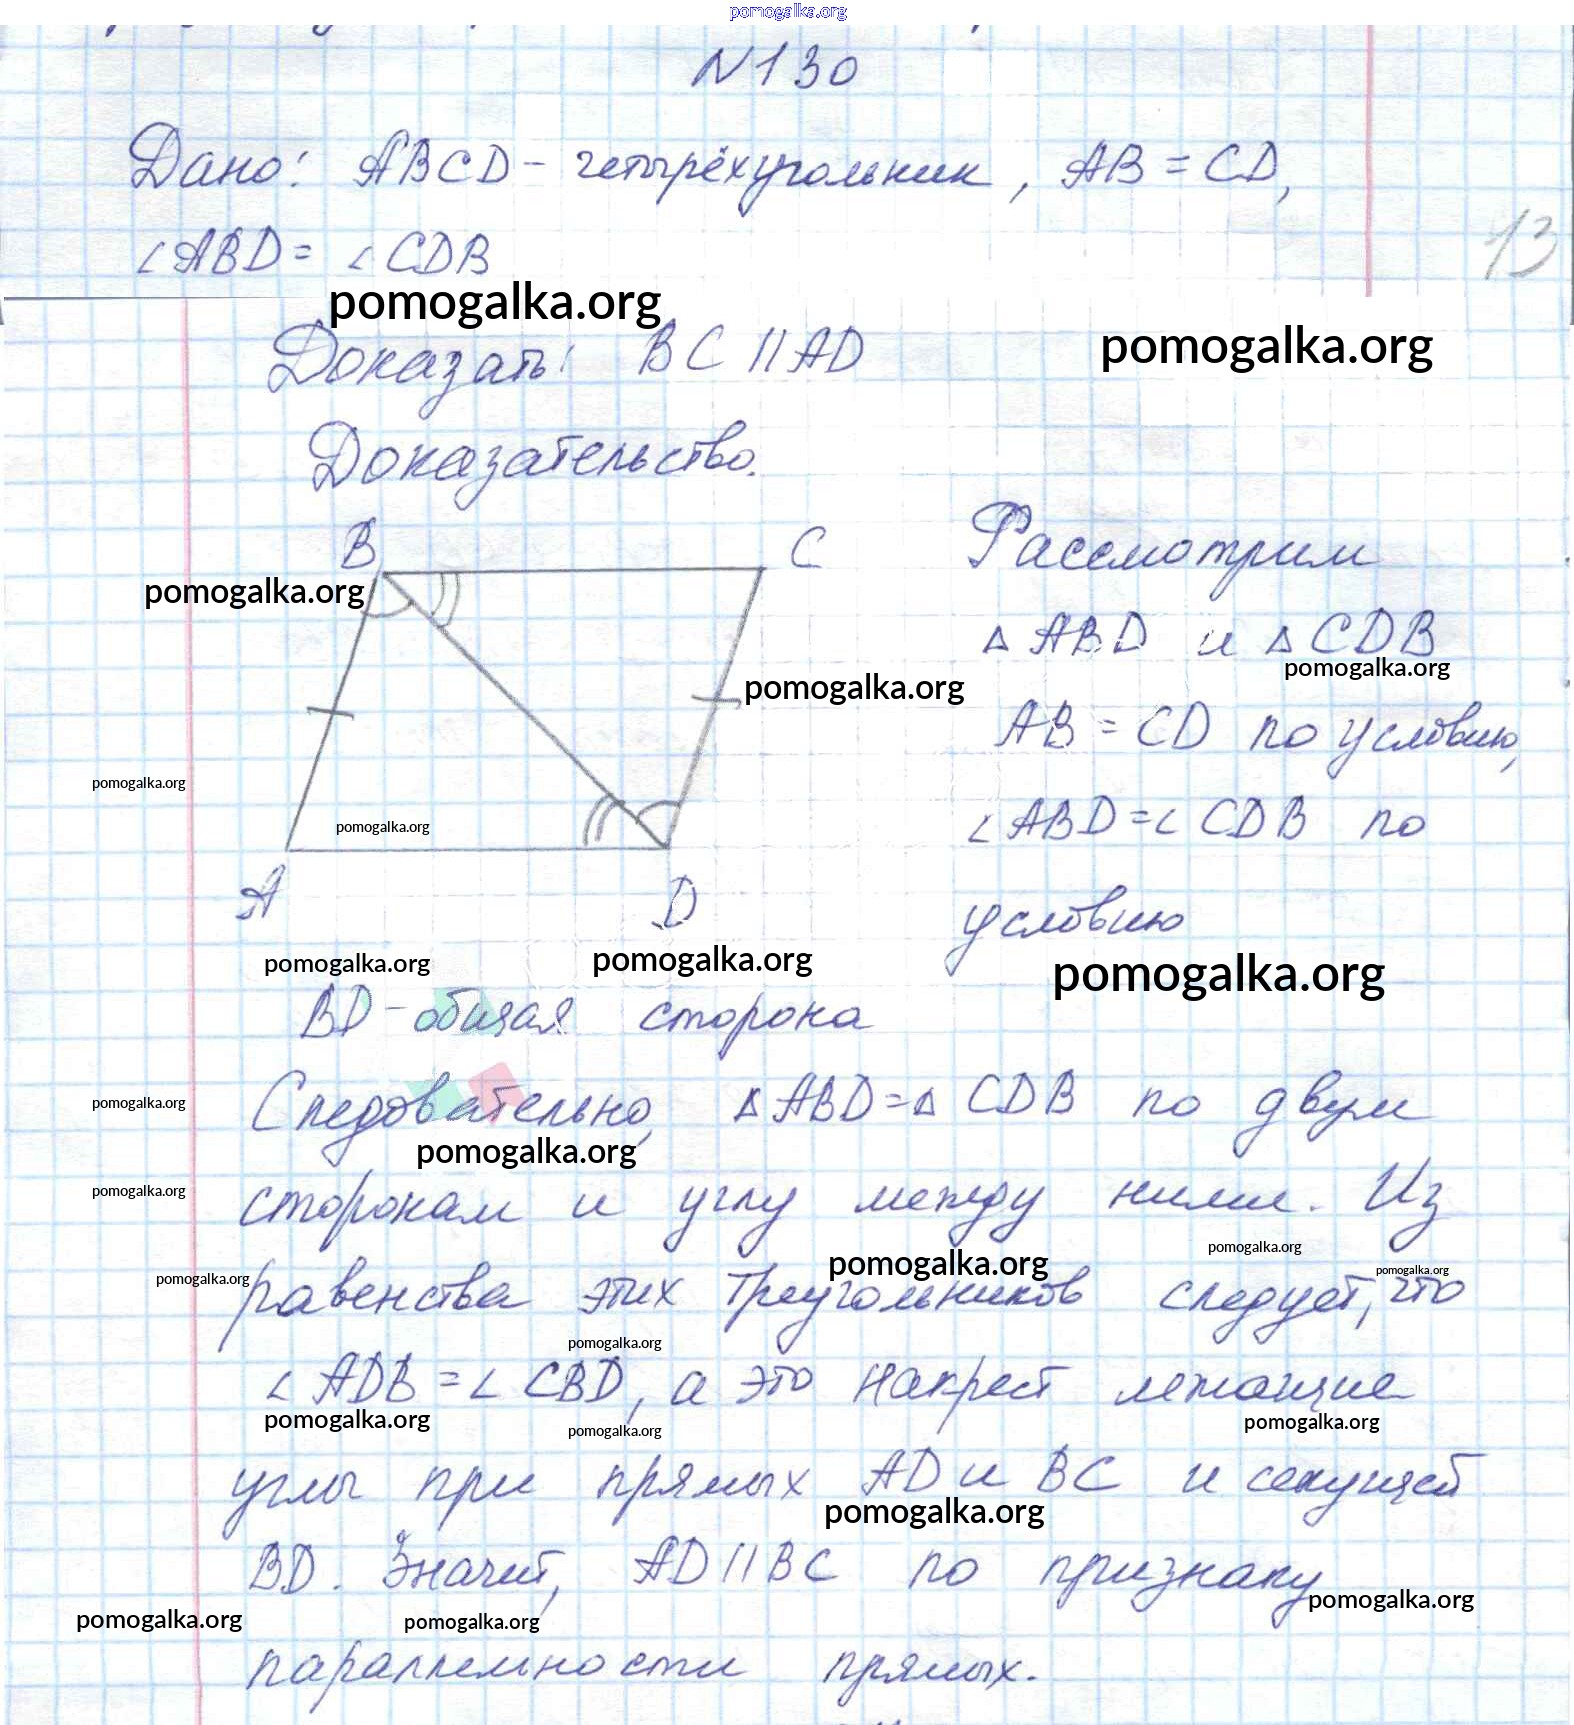 pomogalka.org
N130
Дано: ABCD - четырёхугольник, AB = CD,
∠ABD = ∠CDB
13
pomogalka.org
Доказать: BC || AD
pomogalka.org
Доказательство.
B
C
Рассмотрим
pomogalka.org
△ ABD и △ CDB
pomogalka.org
pomogalka.org
AB = CD по условию,
pomogalka.org
pomogalka.org
∠ABD = ∠CDB по
A
D
условию
pomogalka.org
pomogalka.org
pomogalka.org
BD - общая сторона
pomogalka.org
Следовательно, △ ABD = △ CDB по двум
pomogalka.org
pomogalka.org
сторонам и углу между ними. Из
pomogalka.org
pomogalka.org
pomogalka.org
pomogalka.org
равенства этих треугольников следует, что
pomogalka.org
∠ADB = ∠CBD, а это накрест лежащие
pomogalka.org
pomogalka.org
pomogalka.org
углы при прямых AD и BC и секущей
pomogalka.org
BD. Значит, AD || BC по признаку
pomogalka.org
pomogalka.org
pomogalka.org
параллельности прямых.